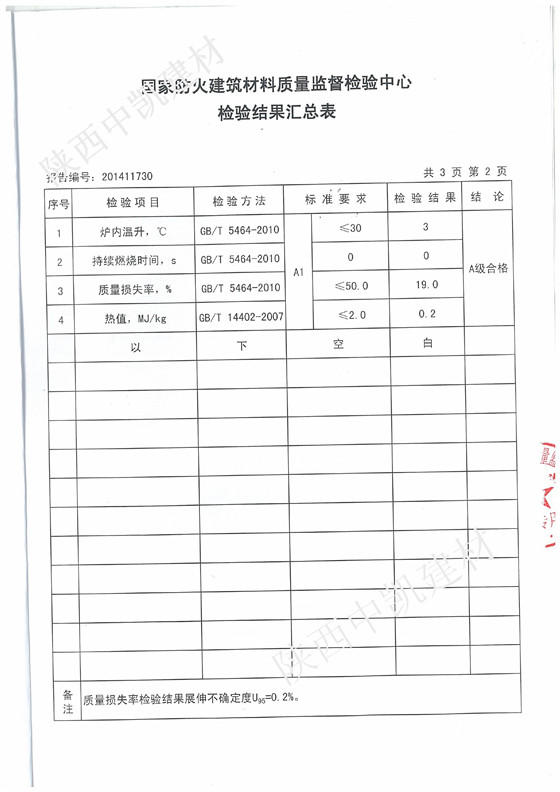 国家防火建筑材料质量监督检验中心
检验结果汇总表
报告编号：201411730 共 3 页 第 2 页
序号 检验项目 检验方法 标准要求 检验结果 结论
1 炉内温升，℃ GB/T 5464-2010 A1 ≤30 3 A级合格
2 持续燃烧时间，s GB/T 5464-2010 0 0
3 质量损失率，% GB/T 5464-2010 ≤50.0 19.0
4 热值，MJ/kg GB/T 14402-2007 ≤2.0 0.2
以 下 空 白
备注 质量损失率检验结果展伸不确定度U₉₅=0.2%。
陕西中凯建材
陕西中凯建材